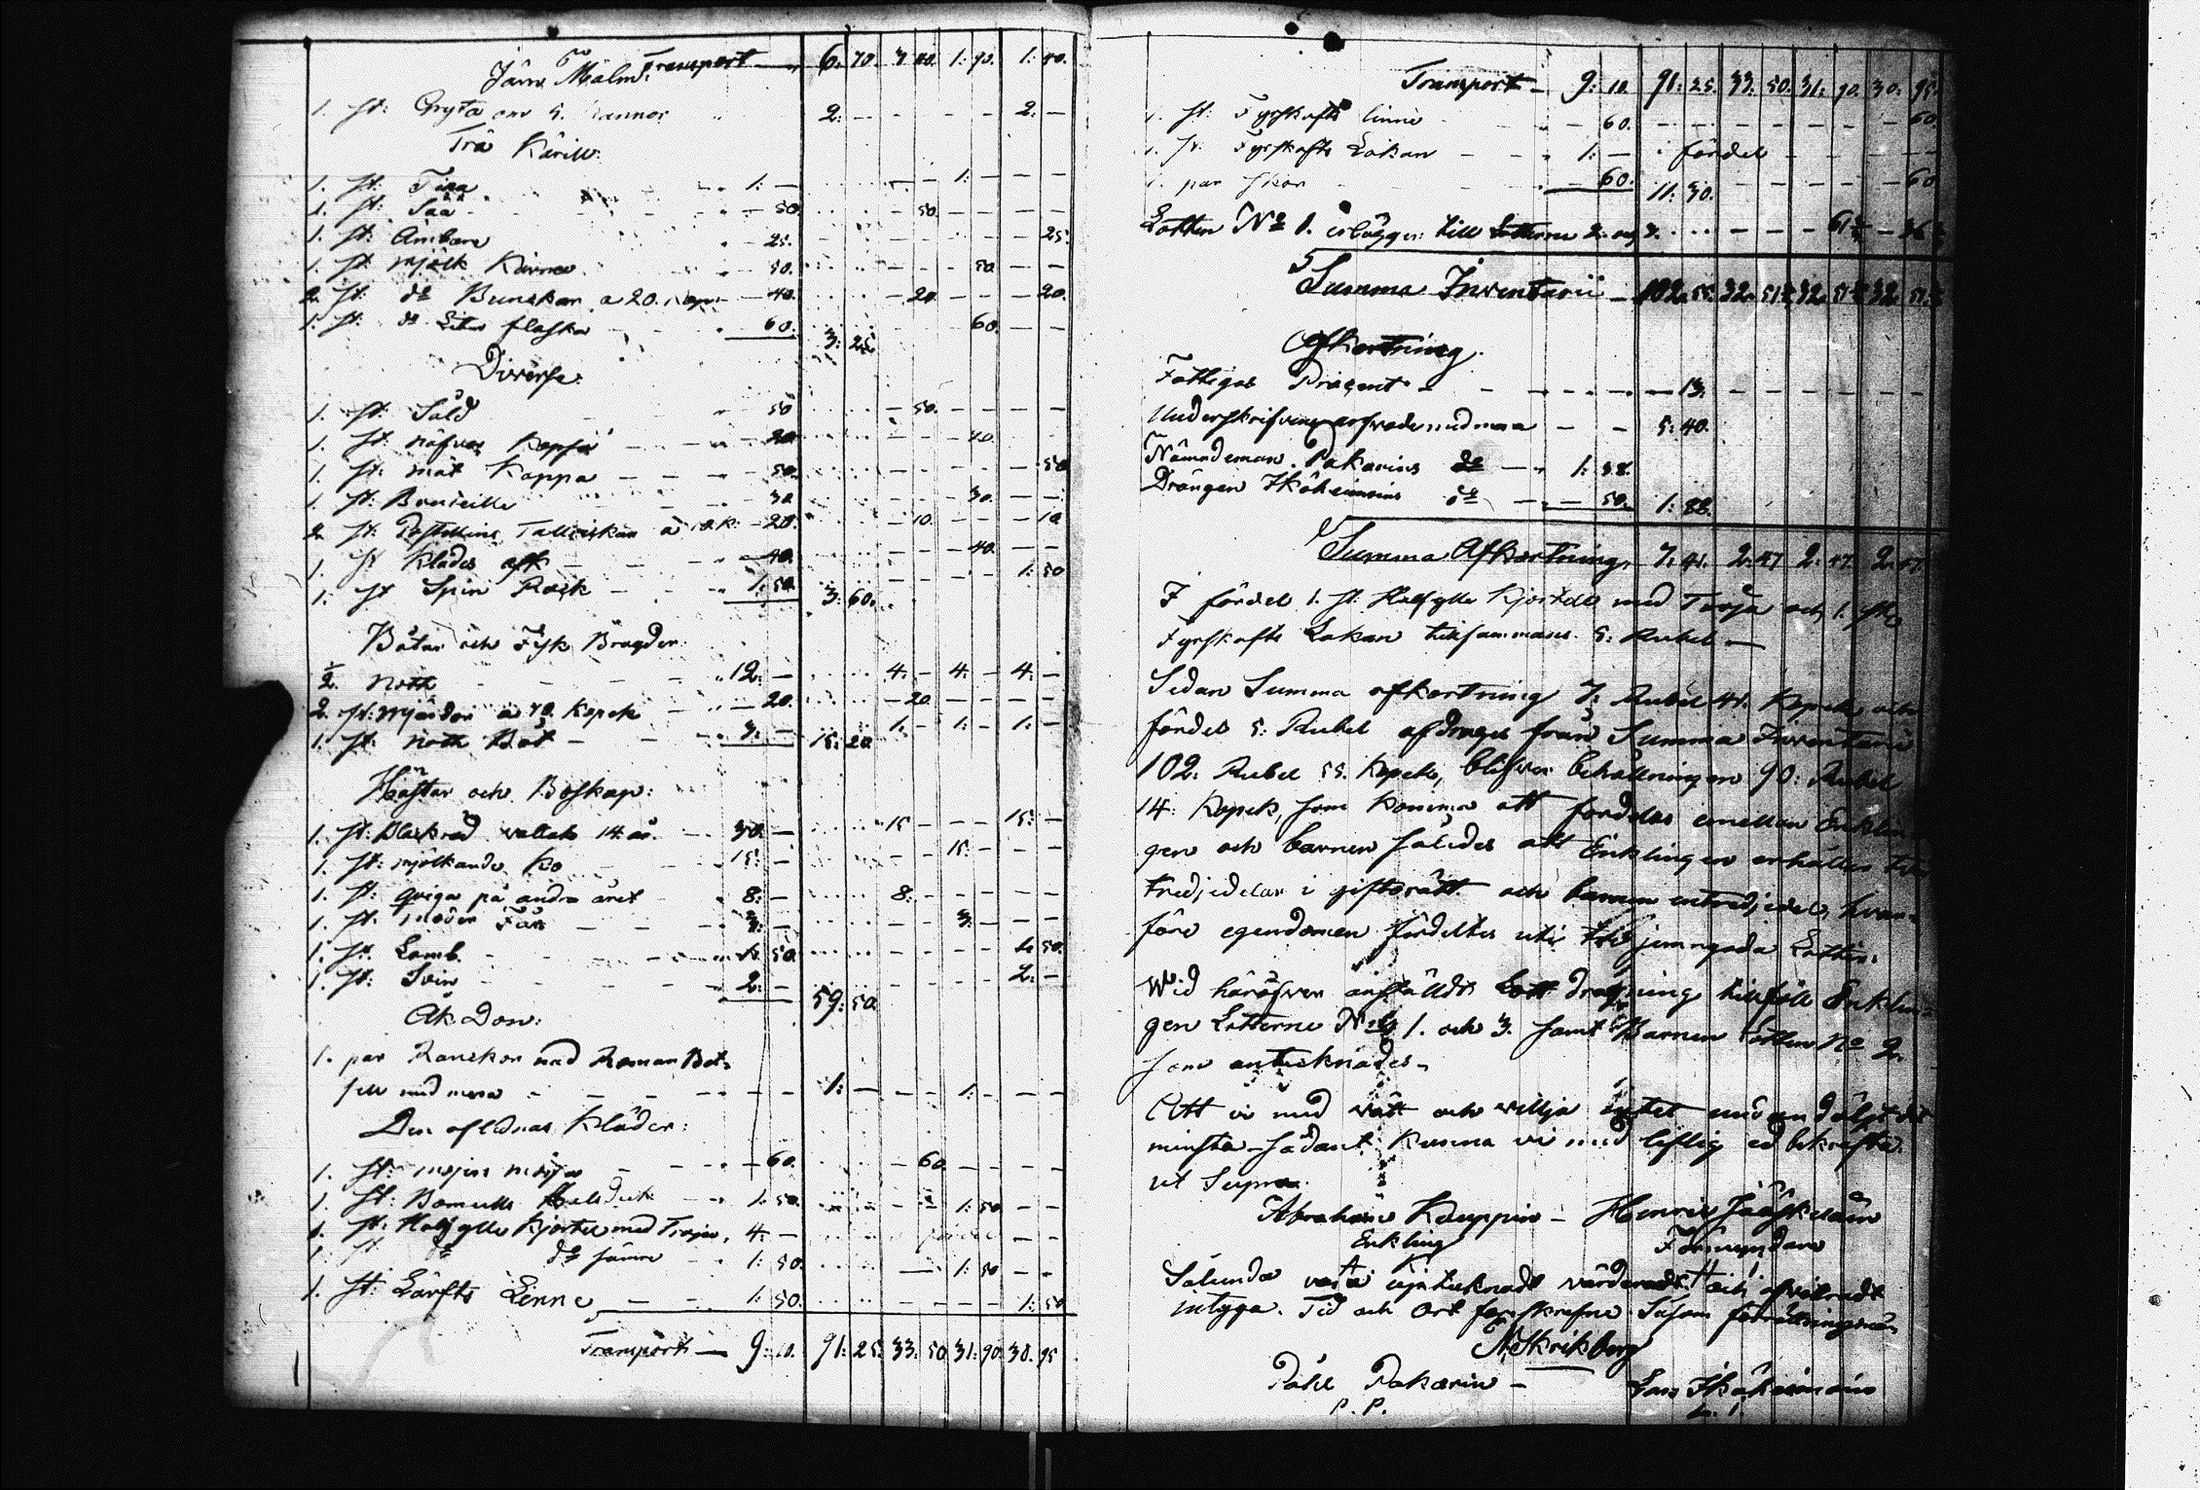 Transport — 6: 70. 3 80. 1: 90. 1: 40.
Järn Malm:
1. st: Gryta om 5. Kannor 2: — 2: —
Trä Kärill:
1. st: Tina 1: — 1: —
1. st: Såå 50. 50.
1. st: Ämbare 25. 25.
1. st mjölk Kärna 50. 50
2. st: do Bunckar a 20. kop 40. 20 20.
1. st: do Liter flaska 60. 60. 3: 25
Diverse:
1. st: Såld 50 50.
1. st: näfver Kopsa 20
1. st: mat Kappa 50. 50
1. st: Bouteille 30 30.
2 st: Postellins Tallrickar a 10 k 20. 10. 10
1. st Klädes ask 40. 40.
1. st Spin Rock 1: 50. 3: 60. 1: 50
Båtar och Fisk Bragder
1/2 Noth 12: — 4: — 4: — 4: —
2. st: Mjärdor a 10. Kopek 20. 20
1. st: Noth Båt 3: — 15: 20 1: 1: 1: —
Hästar och Boskap:
1. st: Blackröd vallak 14 år. 30: — 15 15: —
1. st: mjölkande Ko 15: — 15: —
1. st: qviga på andra året 8: — 8: —
1. st: moder Får 3: — 3: —
1. st: Lamb 1: 50. 1: 50.
1. st: Svin 2: — 59: 50. 2: —
Åk Don:
1. par med
sell med mera 1: — 1: —
Den aflednas Kläder:
1. st: 60. 60.
1. st: Bomulls Halsduk 1: 50. 1: 50
1. st: Halfylle Kjortel med Troja, 4: — fördel
1. st do do sämre 1: 50. 1: 50
1. st: Lärfts Linne 1: 50. 1: 50
Transport — 9: 10. 91: 25. 33: 50 31: 90. 30. 95
Transport — 9: 10. 91: 25. 33: 50. 31: 90. 30. 95.
1. st: Fyrskafts linne 60. 60.
1. st: Fyrskafts Lakan 1: — fördel
1. par skor 60. 11: 30. 60
Lotten No 1. erlägger till Lotterne 2. och 3.
Summa Inventarii 102: 55. 32. 51 32. 51 32. 51
Afkortning.
Fattigas Procent 13.
Underskrifven arfvode med mera 5: 40.
Nämndeman Pakarins do 1: 38.
Drängen Ikäheimoins do 50. 1: 88.
Summa Afkortning 7: 41. 2: 47 2: 47. 2: 47
I fördel 1. st: Halfylle Kjortel med Troja och 1. st
Fyrskafts Lakan tillsammans 5: Rubel —
Sedan Summa afkortning 7: Rubel 41. Kopek och
fördel 5: Rubel afdrages från Summa Inventarii
102. Rubel 55. Kopek, blifver behållningen 90: Rubel
14. Kopek, som komma att fördelas emellan Enklin
gen och barnen således att Enklingen erhåller två
tredjedelar i giftorätt och barnen entredjedel, hvar-
före egendomen fördeltes uti tre jemngoda Lotter.
Wid häröfver anställdt Lott dragning tillföll Enklin-
gen Lotterne No 1. och 3. samt Barnen Lotten No 2.
som antecknades.
Att vi med vett och willja intet undandöljt det
minsta sådant kunna vi med liflig ed bekräfta.
ut Supra.
Abraham Kauppin — Henric Jääskeläin
Enkling Förmyndare
Sålunda vara upteknadt värderadt och afvittradt
intyga. Tid och Ort förskrefne Såsom förrättningsmän
Skrikberg
Påhl Pakarin — Lars Ikäheimoin
P. P. L. I.